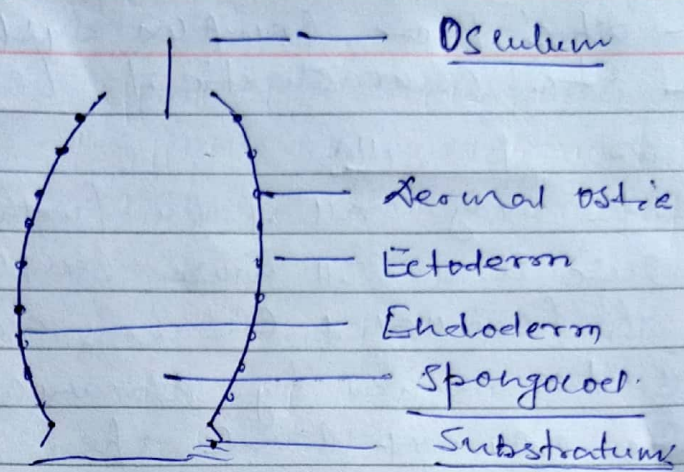 Osculum
Dermal ostia
Ectoderm
Endoderm
Spongocoel.
Substratum